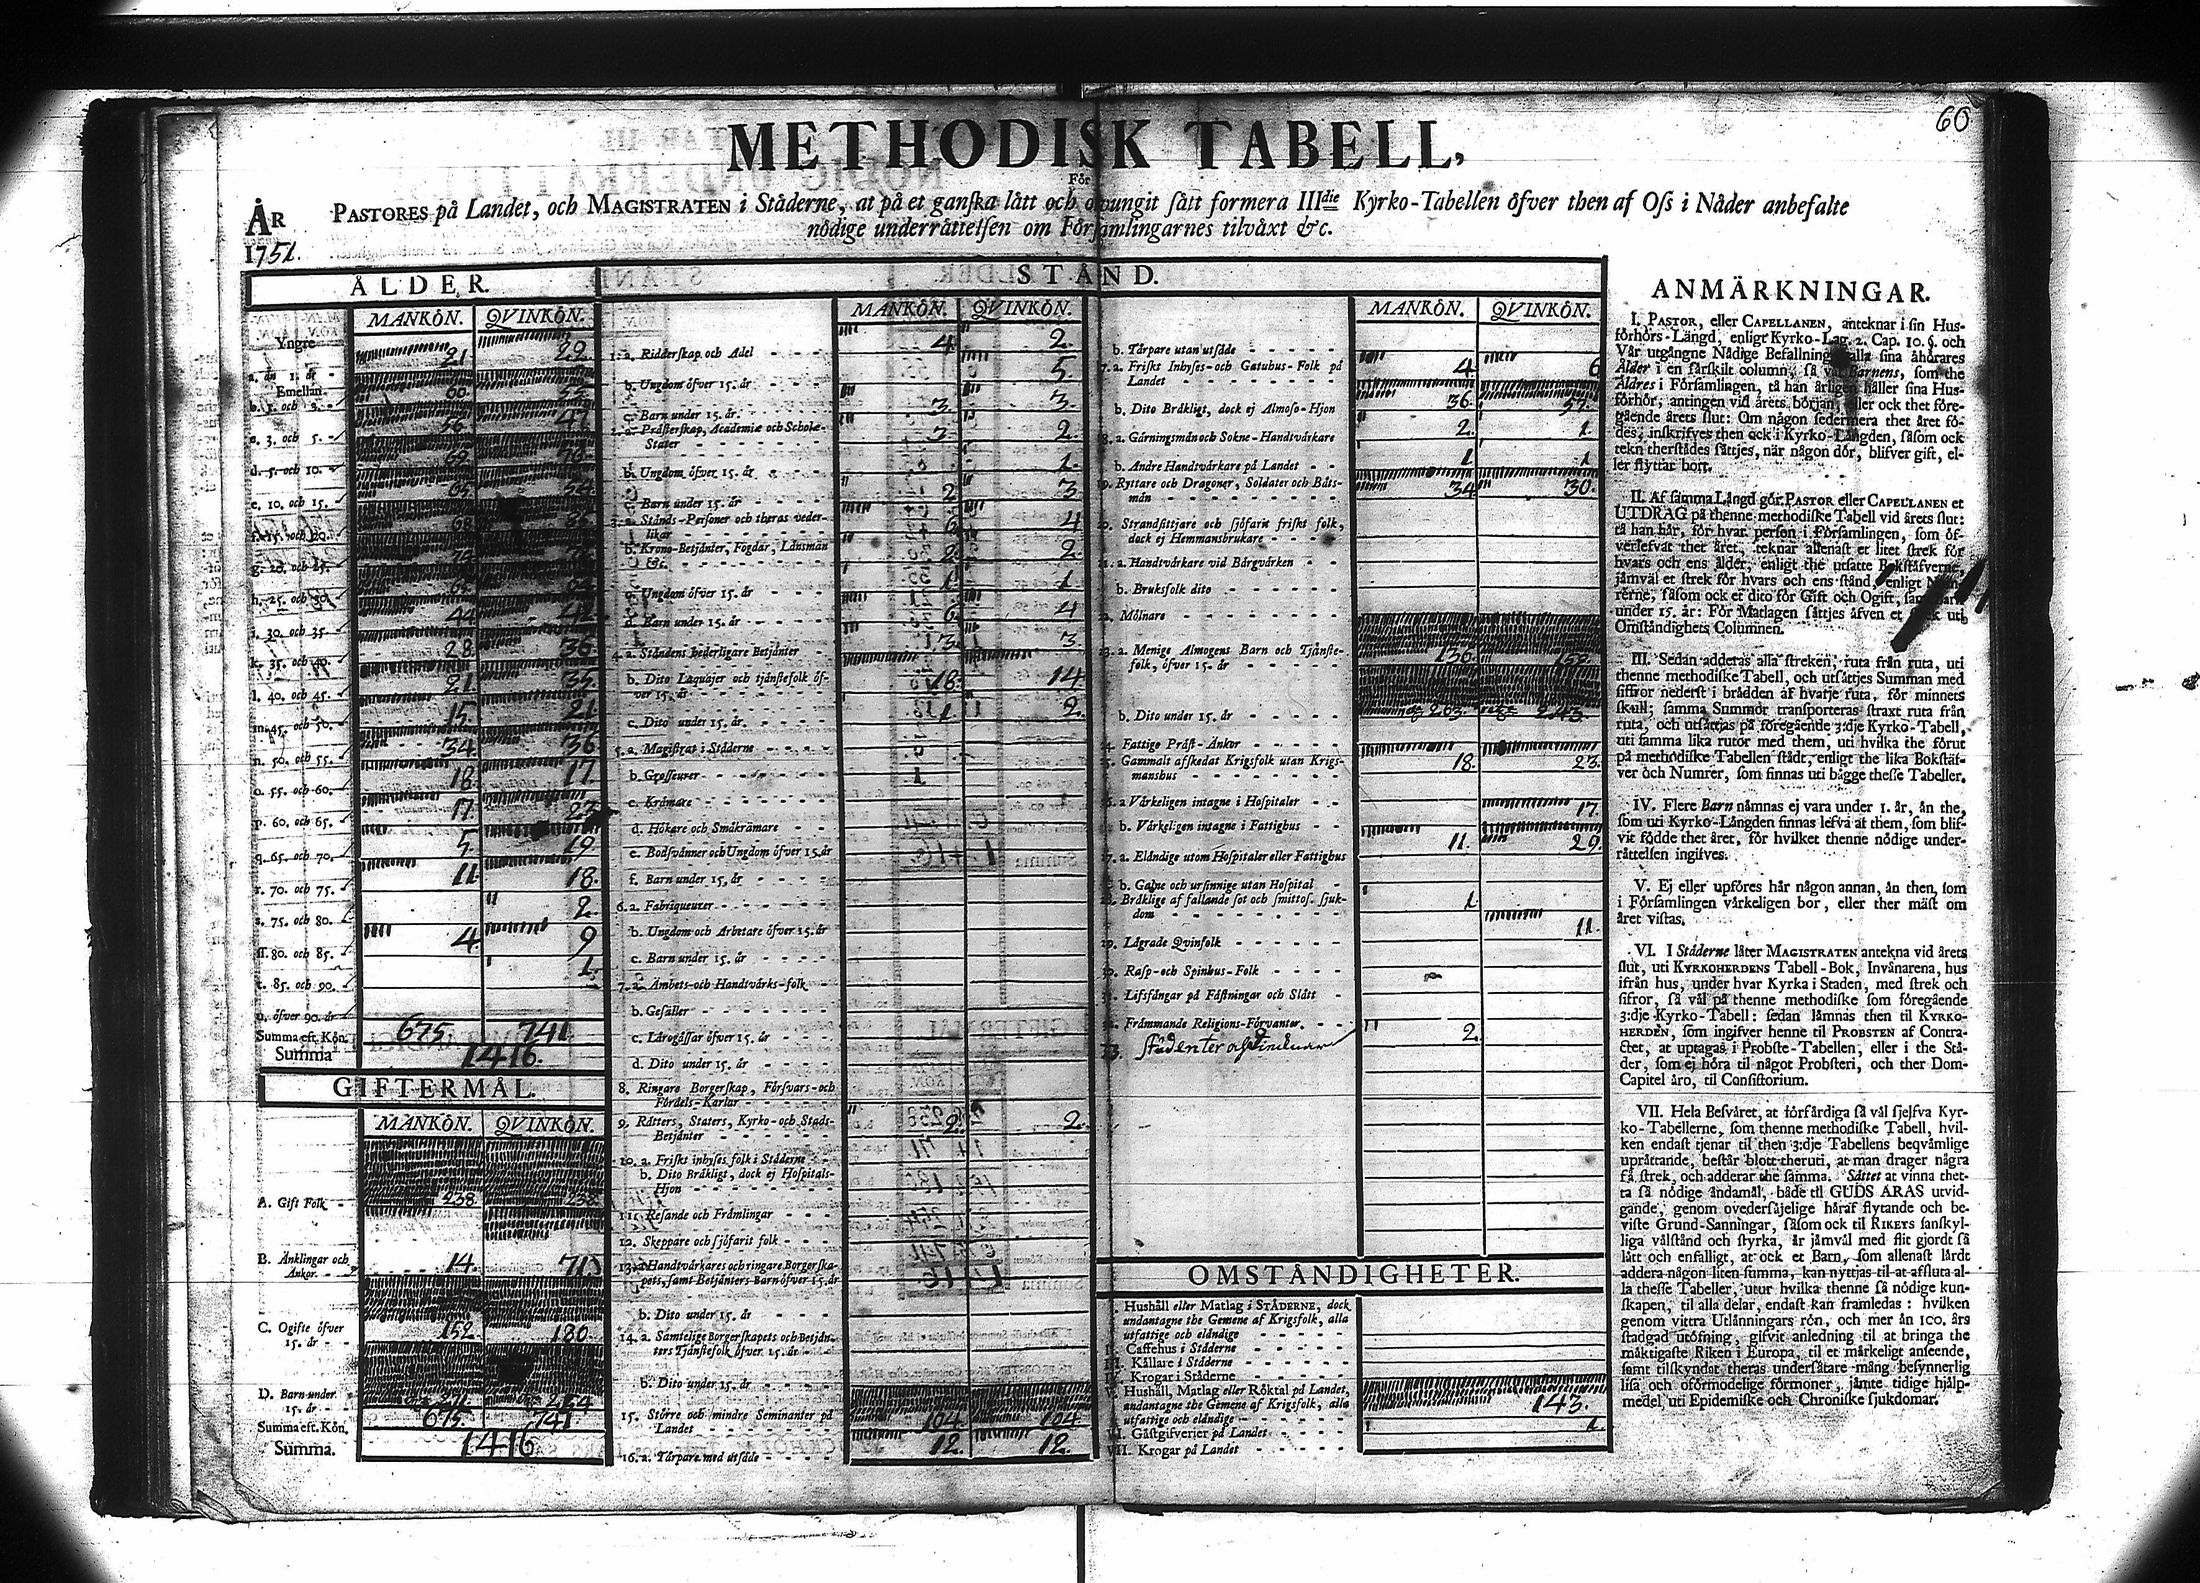 60
METHODISK TABELL,
För
ÅR PASTORES på Landet, och MAGISTRATEN i Städerne, at på et ganska lätt och otvungit sätt formera IIIdie Kyrko-Tabellen öfver then af Oss i Nåder anbefalte
1751. nödige underrättelsen om Församlingarnes tilväxt &c.
ÅLDER.
MANKÖN. QVINKÖN.
Yngre
a. än 1. år - 21 22
Emellan
b. 1. och 3. - 60
c. 3. och 5. - 56 47
d. 5. och 10. - 69
e. 10. och 15. - 65
f. 15. och 20. 68
g. 20. och 25.
h. 25. och 30.
i. 30. och 35. 44 42
k. 35. och 40. 28 36
l. 40. och 45. 21. 35
m. 45. och 50. 15. 21
n. 50. och 55. 34 36
o. 55. och 60. 18. 17.
p. 60. och 65. 17.
q. 65. och 70. 5. 19
r. 70. och 75. 11. 18.
s. 75. och 80. 2.
ss. 80. och 85. 4. 9
t. 85. och 90. 1.
u. öfver 90. år
Summa eft. Kön. 675. 741.
Summa 1416.
GIFTERMÅL.
MANKÖN. QVINKÖN.
A. Gift Folk - 238 238
B. Änklingar och
Änkor. - 14.
C. Ogifte öfver 152. 180.
15. år - -
D. Barn under 271
15. år -
Summa eft. Kön. 675. 741
Summa. 1416
STÅND.
MANKÖN. QVINKÖN.
1. a. Ridderskap och Adel - - - - 4. 2.
b. Ungdom öfver 15. år - - - - 5.
c. Barn under 15. år. - - - - 3. 3.
2. a. Prästerskap, Academiæ och Scholæ-
Stater - - - - 3. 2.
b. Ungdom öfver 15. år - - - 1.
c. Barn under 15. år - - - - 2 3
3. a. Stånds-Personer och theras veder-
likar - - - - 6. 4
b. Krono-Betjänter, Fogdar, Länsmän
&c. - - - - 2. 2.
c. Ungdom öfver 15. år - - - 1 1
d. Barn under 15. år - - - - 6. 4
4. a. Ståndens hederligare Betjänter - 3. 3
b. Dito Laquajer och tjänstefolk öf-
ver 15. år - - - - 18. 14
c. Dito under 15. år. - - - - 1. 2.
5. a. Magistrat i Städerne - - - -
b. Grosseurer - - - - 1
c. Krämare - - - - -
d. Hökare och Småkrämare - -
e. Bodsvänner och Ungdom öfver 15. år
f. Barn under 15. år - - - -
6. a. Fabriqueurer - - - - -
b. Ungdom och Arbetare öfver 15. år
c. Barn under 15. år - - - -
7. a. Ämbets- och Handtvärks-folk -
b. Gesäller - - - - -
c. Lärogåssar öfver 15. år - - -
d. Dito under 15. år - - - -
8. Ringare Borgerskap, Försvars- och
Fördels-Karlar - - - -
9. Rätters, Staters, Kyrko- och Stads-
Betjänter - - - - 2. 2.
10. a. Friskt inhyses folk i Städerne -
b. Dito Bräkligt, dock ej Hospitals-
Hjon - - - - -
11. Resande och Främlingar - - -
12. Skeppare och sjöfarit folk - - -
13. a. Handtvärkares och ringare Borgerska-
pets, samt Betjänters Barn öfver 15. år
b. Dito under 15. år - - - -
14. a. Samtelige Borgerskapets och Betjän-
ters Tjänstefolk öfver 15. år - -
b. Dito under 15. år - - - -
15. Större och mindre Seminanter på 104 104
Landet - - - - -
16. a. Torpare med utsäde - - - - 12. 12.
MANKÖN. QVINKÖN.
b. Torpare utan utsäde - - - -
7. a. Friskt Inhyses- och Gatuhus-Folk på
Landet - - - - 4. 6
b. Dito Bräkligt, dock ej Almoso-Hjon 36. 57.
8. a. Gärningsmän och Sokne-Handtvärkare 2. 1.
b. Andre Handtvärkare på Landet - - 1 1
9. Ryttare och Dragoner, Soldater och Båts-
män - - - - 34 30.
Strandsittjare och sjöfarit friskt folk,
dock ej Hemmansbrukare - - - -
1. a. Handtvärkare vid Bärgvärken - -
b. Bruksfolk dito - - - -
Mölnare - - - - -
3. a. Menige Almogens Barn och Tjänste-
folk, öfver 15. år - - - - 136.
b. Dito under 15. år - - - - 263. 243.
4. Fattige Präst-Änkor - - - -
5. Gammalt afskedat Krigsfolk utan Krigs-
manshus - - - - 18. 23.
6. a. Värkeligen intagne i Hospitaler - -
b. Värkeligen intagne i Fattighus - - 17.
7. a. Eländige utom Hospitaler eller Fattighus 11. 29.
b. Galne och ursinnige utan Hospital -
8. Bräklige af fallande sot och smittos. sjuk-
dom - - - - 1.
19. Lägrade Qvinfolk - - - - 11.
Rasp- och Spinhus-Folk - - - -
Lifsfångar på Fästningar och Slått -
Främmande Religions-Förvanter. - - 2.
23. Studenter och
OMSTÄNDIGHETER.
Hushåll eller Matlag i STÄDERNE, dock
undantagne the Gemene af Krigsfolk, alla
utfattige och eländige - - - -
Caffehus i Städerne - - - -
Källare i Städerne - - - -
Krogar i Städerne - - - -
Hushåll, Matlag eller Röktal på Landet,
undantagne the Gemene af Krigsfolk, alla 143.
utfattige och eländige - - - -
VI. Gästgifverier på Landet - - - 1.
VII. Krogar på Landet - - - -
ANMÄRKNINGAR.
I. PASTOR, eller CAPELLANEN, anteknar i sin Hus-
förhörs-Längd, enligt Kyrko-Lag. 2. Cap. 10. §. och
Vår utgångne Nådige Befallning alla sina åhörares
Ålder i en särskilt column, så väl Barnens, som the
Äldres i Församlingen, tå han årligen håller sina Hus-
förhör; antingen vid årets början, eller ock thet före-
gående årets slut: Om någon sedermera thet året fö-
des, inskrifves then ock i Kyrko-Längden, såsom ock
tekn therstädes sättjes, när någon dör, blifver gift, el-
ler flyttar bort.
II. Af samma Längd gör PASTOR eller CAPELLANEN et
UTDRAG på thenne methodiske Tabell vid årets slut:
tå han här, för hvar person i Församlingen, som öf-
verlefvat thet året, teknar allenast et litet strek för
hvars och ens ålder, enligt the utsatte Bokstäfverne,
jämväl et strek för hvars och ens stånd, enligt Num-
rerne, såsom ock et dito för Gift och Ogift, samt Barn
under 15. år: För Matlagen sättjes äfven et strek uti
Omständighets Columnen.
III. Sedan adderas alla streken, ruta från ruta, uti
thenne methodiske Tabell, och utsättjes Summan med
siffror nederst i brädden af hvarje ruta, för minnets
skull; samma Summor transporteras straxt ruta från
ruta, och utsättjas på föregående 3:dje Kyrko-Tabell,
uti samma lika rutor med them, uti hvilka the förut
på methodiske Tabellen stådt, enligt the lika Bokstäf-
ver och Numrer, som finnas uti bägge thesse Tabeller.
IV. Flere Barn nämnas ej vara under 1. år, än the,
som uti Kyrko-Längden finnas lefva af them, som blif-
vit födde thet året, för hvilket thenne nödige under-
rättelsen ingifves.
V. Ej eller upföres här någon annan, än then, som
i Församlingen värkeligen bor, eller ther mäst om
året vistas.
VI. I Städerne låter MAGISTRATEN antekna vid årets
slut, uti KYRKOHERDENS Tabell-Bok, Invånarena, hus
ifrån hus, under hvar Kyrka i Staden, med strek och
sifror, så väl på thenne methodiske som föregående
3:dje Kyrko-Tabell: sedan lämnas then til KYRKO-
HERDEN, som ingifver henne til PROBSTEN af Contra-
ctet, at uptagas i Probste-Tabellen, eller i the Stä-
der, som ej höra til något Probsteri, och ther Dom-
Capitel äro, til Consistorium.
VII. Hela Besväret, at förfärdiga så väl sjelfva Kyr-
ko-Tabellerne, som thenne methodiske Tabell, hvil-
ken endast tjenar til then 3:dje Tabellens beqvämlige
uprättande, består blott theruti, at man drager några
få strek, och adderar the samma. Sättet at vinna thet-
ta så nödige ändamål, både til GUDS ÄRAS utvid-
gande, genom ovedersäjelige häraf flytande och be-
viste Grund-Sanningar, såsom ock til RIKETS sanskyl-
liga välstånd och styrka, är jämväl med flit gjordt så
lätt och enfalligt, at ock et Barn, som allenast lärdt
addera någon liten summa, kan nyttjas til at afsluta al-
la thesse Tabeller, utur hvilka thenne så nödige kun-
skapen, til alla delar, endast kan framledas: hvilken
genom vittra Utlänningars rön, och mer än 100. års
stadgad utöfning, gifvit anledning til at bringa the
mäktigaste Riken i Europa, til et märkeligt anseende,
samt tilskyndat theras undersåtare mång besynnerlig
lisa och oförmodelige förmoner, jämte tidige hjälp-
medel uti Epidemiske och Chroniske sjukdomar.